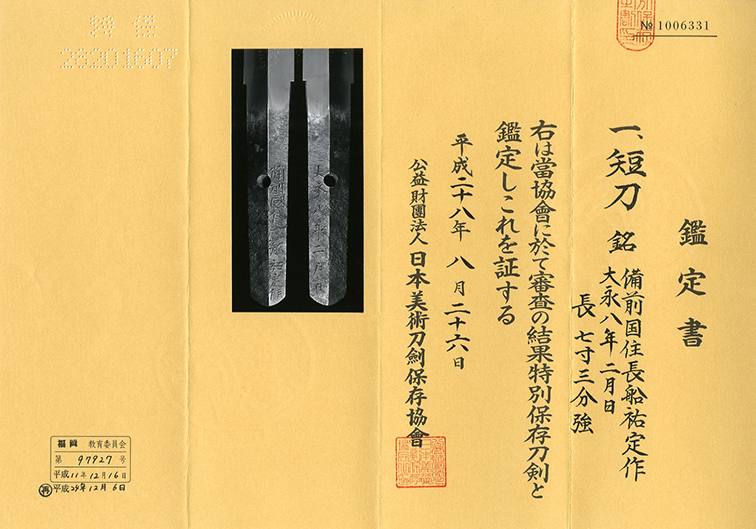 № 1006331
鑑定書
一、短刀 銘 備前国住長船祐定作
大永八年二月日
長 七寸三分強
右は當協會に於て審査の結果特別保存刀剣と
鑑定しこれを証する
平成二十八年 八月二十六日
公益財團法人 日本美術刀劍保存協會
備前國住長船祐定作
大永八年二月日
28201607
福岡 教育委員会
第 97927 号
平成11年12月16日
再 平成24年12月6日